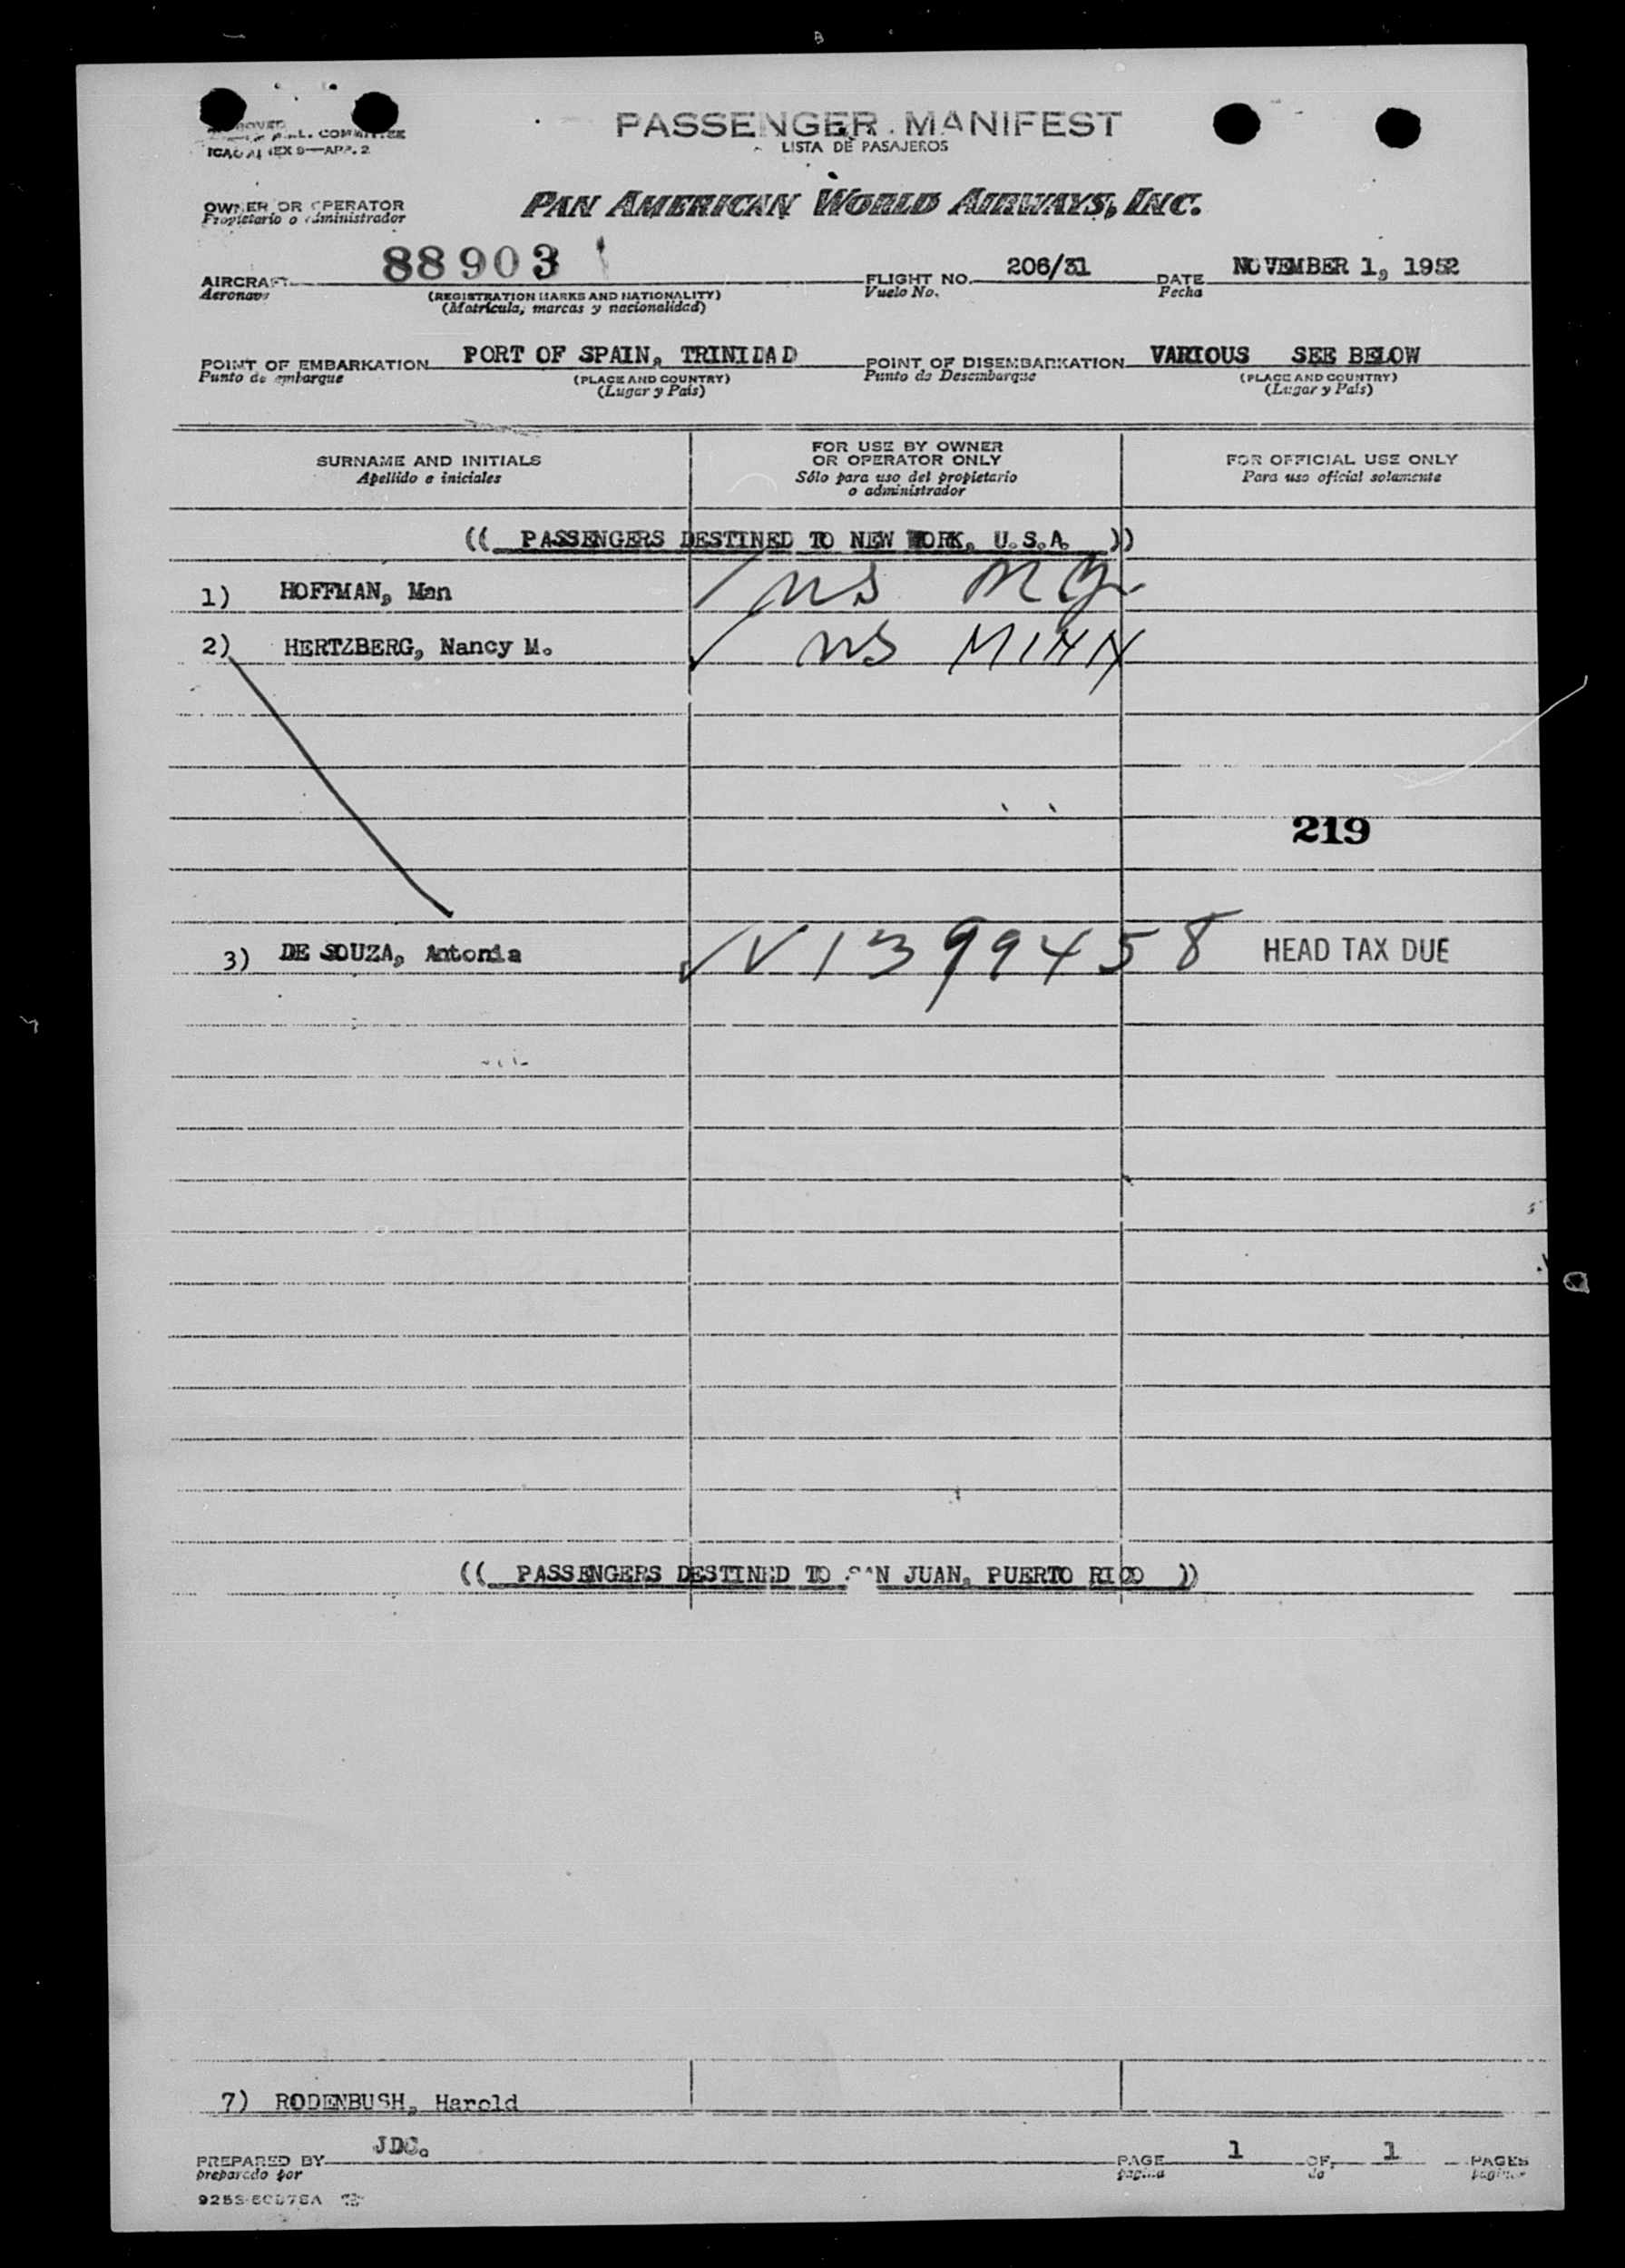 PASSENGER MANIFEST
LISTA DE PASAJEROS
ICAO ANNEX 9—APP. 2
OWNER OR OPERATOR
Propietario o administrador
PAN AMERICAN WORLD AIRWAYS, INC.
AIRCRAFT 88903 FLIGHT NO. 206/31 DATE NOVEMBER 1, 1952
Aeronave (REGISTRATION MARKS AND NATIONALITY) Vuelo No. Fecha
(Matrícula, marcas y nacionalidad)
POINT OF EMBARKATION PORT OF SPAIN, TRINIDAD POINT OF DISEMBARKATION VARIOUS SEE BELOW
Punto de embarque (PLACE AND COUNTRY) Punto de Desembarque (PLACE AND COUNTRY)
(Lugar y País) (Lugar y País)
SURNAME AND INITIALS FOR USE BY OWNER OR OPERATOR ONLY FOR OFFICIAL USE ONLY
Apellido e iniciales Sólo para uso del propietario o administrador Para uso oficial solamente
(( PASSENGERS DESTINED TO NEW YORK, U.S.A. ))
1) HOFFMAN, Man
2) HERTZBERG, Nancy M. MINN
219
3) DE SOUZA, Antonia V1399458 HEAD TAX DUE
(( PASSENGERS DESTINED TO SAN JUAN, PUERTO RICO ))
7) RODENBUSH, Harold
PREPARED BY JDC. PAGE 1 OF 1 PAGES
preparado por pagina de paginas